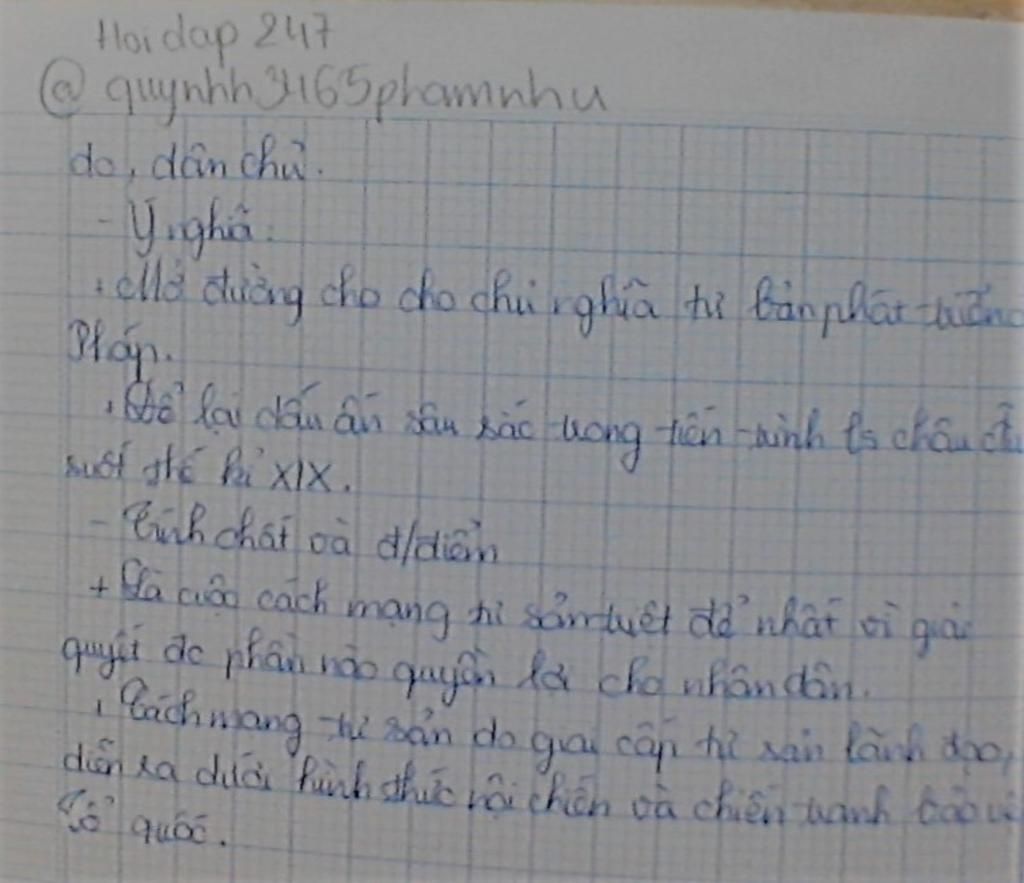 Hoidap 247
@quynhh3465phamnhu
do, dân chủ.
- Ý nghĩa:
+ Mở đường cho cho chủ nghĩa tư bản phát triển
Pháp.
+ Để lại dấu ấn sâu sắc trong tiến trình ls châu Âu
suốt thế kỉ XIX.
- Tính chất và đ/điểm
+ Là cuộc cách mạng tư sản triệt để nhất vì giải
quyết đc phần nào quyền lợi cho nhân dân.
+ Cách mạng tư sản do giai cấp tư sản lãnh đạo,
diễn ra dưới hình thức nội chiến và chiến tranh bảo vệ
Tổ quốc.